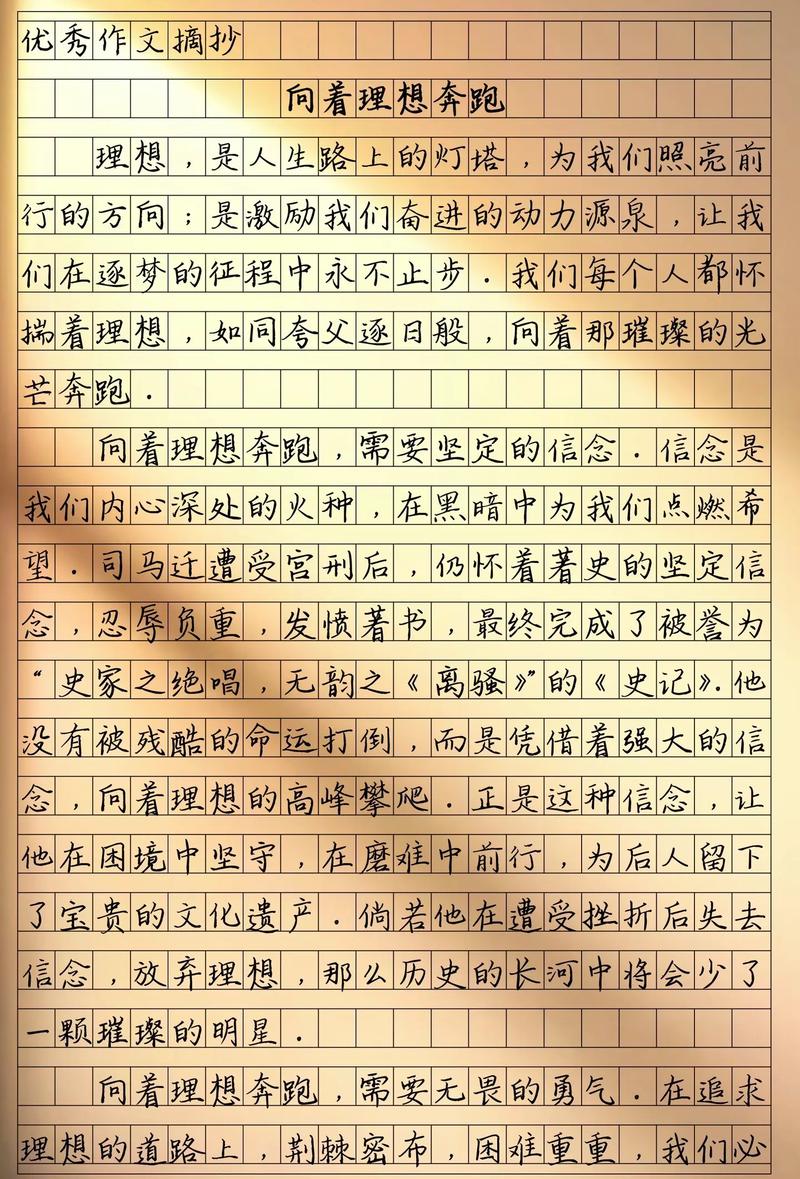 优秀作文摘抄
向着理想奔跑
理想，是人生路上的灯塔，为我们照亮前
行的方向；是激励我们奋进的动力源泉，让我
们在逐梦的征程中永不止步．我们每个人都怀
揣着理想，如同夸父逐日般，向着那璀璨的光
芒奔跑．
向着理想奔跑，需要坚定的信念．信念是
我们内心深处的火种，在黑暗中为我们点燃希
望．司马迁遭受宫刑后，仍怀着著史的坚定信
念，忍辱负重，发愤著书，最终完成了被誉为
“史家之绝唱，无韵之《离骚》”的《史记》．他
没有被残酷的命运打倒，而是凭借着强大的信
念，向着理想的高峰攀爬．正是这种信念，让
他在困境中坚守，在磨难中前行，为后人留下
了宝贵的文化遗产．倘若他在遭受挫折后失去
信念，放弃理想，那么历史的长河中将会少了
一颗璀璨的明星．
向着理想奔跑，需要无畏的勇气．在追求
理想的道路上，荆棘密布，困难重重，我们必